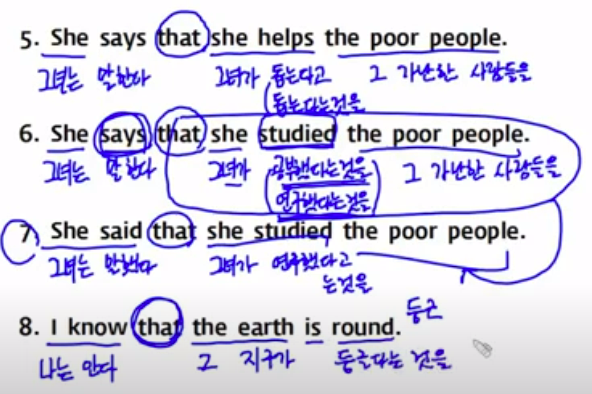 5. She says that she helps the poor people.
그녀는 말한다 그녀가 돕는다고 그 가난한 사람들을
돕는다는것을
6. She says that she studied the poor people.
그녀는 말한다 그녀가 공부했다는것을 그 가난한 사람들을
연구했다는것을
7. She said that she studied the poor people.
그녀는 말했다 그녀가 연구했다고
는것을
8. I know that the earth is round. 둥근
나는 안다 그 지구가 둥글다는 것을